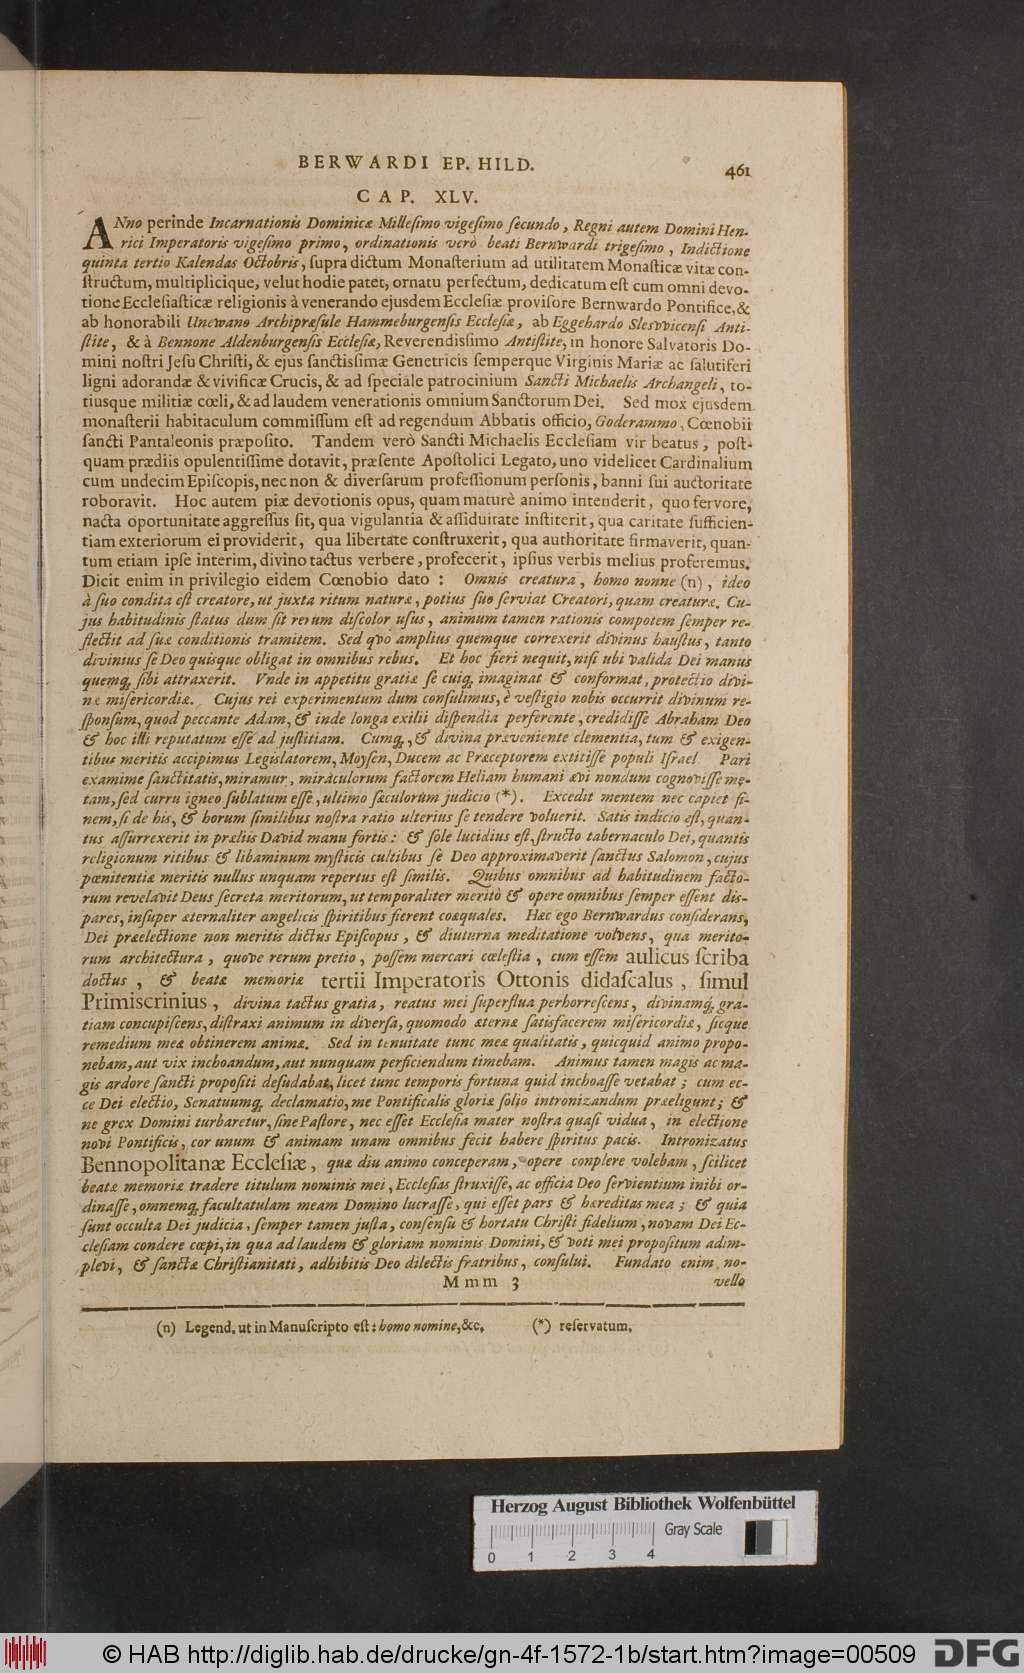 BERWARDI EP. HILD. 461
CAP. XLV.
ANno perinde Incarnationis Dominicæ Milleſimo vigeſimo ſecundo, Regni autem Domini Hen-
rici Imperatoris vigeſimo primo, ordinationis verò beati Bernwardi trigeſimo, Indictione
quinta tertio Kalendas Octobris, ſupra dictum Monaſterium ad utilitatem Monaſticæ vitæ con-
ſtructum, multiplicique, velut hodie patet, ornatu perfectum, dedicatum eſt cum omni devo-
tione Eccleſiaſticæ religionis à venerando ejusdem Eccleſiæ proviſore Bernwardo Pontifice, &
ab honorabili Unewano Archipræſule Hammeburgenſis Eccleſiæ, ab Eggehardo Slesvvicenſi Anti-
ſtite, & à Bennone Aldenburgenſis Eccleſiæ, Reverendiſſimo Antiſtite, in honore Salvatoris Do-
mini noſtri Jeſu Chriſti, & ejus ſanctiſſimæ Genetricis ſemperque Virginis Mariæ ac ſalutiferi
ligni adorandæ & vivificæ Crucis, & ad ſpeciale patrocinium Sancti Michaelis Archangeli, to-
tiusque militiæ cœli, & ad laudem venerationis omnium Sanctorum Dei. Sed mox ejusdem
monaſterii habitaculum commiſſum eſt ad regendum Abbatis officio, Goderammo, Cœnobii
ſancti Pantaleonis præpoſito. Tandem verò Sancti Michaelis Eccleſiam vir beatus, poſt-
quam prædiis opulentiſſime dotavit, præſente Apoſtolici Legato, uno videlicet Cardinalium
cum undecim Epiſcopis, nec non & diverſarum profeſſionum perſonis, banni ſui auctoritate
roboravit. Hoc autem piæ devotionis opus, quam maturè animo intenderit, quo fervore,
nacta oportunitate aggreſſus ſit, qua vigulantia & aſſiduitate inſtiterit, qua caritate ſufficien-
tiam exteriorum ei providerit, qua libertate conſtruxerit, qua authoritate firmaverit, quan-
tum etiam ipſe interim, divino tactus verbere, profecerit, ipſius verbis melius proferemus.
Dicit enim in privilegio eidem Cœnobio dato: Omnis creatura, homo nonne (n), ideo
à ſuo condita eſt creatore, ut juxta ritum naturæ, potius ſuo ſerviat Creatori, quam creaturæ. Cu-
jus habitudinis ſtatus dum ſit rerum diſcolor uſus, animum tamen rationis compotem ſemper re-
flectit ad ſuæ conditionis tramitem. Sed qvò amplius quemque correxerit divinus hauſtus, tanto
divinius ſe Deo quisque obligat in omnibus rebus. Et hoc fieri nequit, niſi ubi valida Dei manus
quemq; ſibi attraxerit. Vnde in appetitu gratiæ ſe cuiq; imaginat & conformat, protectio divi-
næ miſericordiæ. Cujus rei experimentum dum conſulimus, è veſtigio nobis occurrit divinum re-
ſponſum, quod peccante Adam, & inde longa exilii diſpendia perferente, credidiſſe Abraham Deo
& hoc illi reputatum eſſe ad juſtitiam. Cumq;, & divina præveniente clementia, tum & exigen-
tibus meritis accipimus Legislatorem, Moyſen, Ducem ac Præceptorem extitiſſe populi Iſrael. Pari
examime ſanctitatis, miramur, miraculorum factorem Heliam humani ævi nondum cognoviſſe me-
tam, ſed curru igneo ſublatum eſſe, ultimo ſæculorum judicio (*). Excedit mentem nec capiet fi-
nem, ſi de his, & horum ſimilibus noſtra ratio ulterius ſe tendere voluerit. Satis indicio eſt, quan-
tus aſſurrexerit in præliis David manu fortis: & ſole lucidius eſt, ſtructo tabernaculo Dei, quantis
religionum ritibus & libaminum myſticis cultibus ſe Deo approximaverit ſanctus Salomon, cujus
pœnitentiæ meritis nullus unquam repertus eſt ſimilis. Quibus omnibus ad habitudinem facto-
rum revelavit Deus ſecreta meritorum, ut temporaliter meritò & opere omnibus ſemper eſſent dis-
pares, inſuper æternaliter angelicis ſpiritibus fierent coæquales. Hæc ego Bernwardus conſiderans,
Dei præelectione non meritis dictus Epiſcopus, & diuturna meditatione volvens, qua merito-
rum architectura, quove rerum pretio, poſſem mercari cœleſtia, cum eſſem aulicus ſcriba
doctus, & beatæ memoriæ tertii Imperatoris Ottonis didaſcalus, ſimul
Primiscrinius, divina tactus gratia, reatus mei ſuperflua perhorreſcens, divinamq; gra-
tiam concupiſcens, diſtraxi animum in diverſa, quomodo æternæ ſatisfacerem miſericordiæ, ſicque
remedium meæ obtinerem animæ. Sed in tenuitate tunc meæ qualitatis, quicquid animo propo-
nebam, aut vix inchoandum, aut nunquam perficiendum timebam. Animus tamen magis ac ma-
gis ardore ſancti propoſiti deſudabat, licet tunc temporis fortuna quid inchoaſſe vetabat; cum ec-
ce Dei electio, Senatuumq; declamatio, me Pontificalis gloriæ ſolio intronizandum præeligunt; &
ne grex Domini turbaretur, ſine Paſtore, nec eſſet Eccleſia mater noſtra quaſi vidua, in electione
novi Pontificis, cor unum & animam unam omnibus fecit habere ſpiritus pacis. Intronizatus
Bennopolitanæ Eccleſiæ, quæ diu animo conceperam, opere conplere volebam, ſcilicet
beatæ memoriæ tradere titulum nominis mei, Eccleſias ſtruxiſſe, ac officia Deo ſervientium inibi or-
dinaſſe, omnemq; facultatulam meam Domino lucraſſe, qui eſſet pars & hæreditas mea; & quia
ſunt occulta Dei judicia, ſemper tamen juſta, conſenſu & hortatu Chriſti fidelium, novam Dei Ec-
cleſiam condere cœpi, in qua ad laudem & gloriam nominis Domini, & voti mei propoſitum adim-
plevi, & ſanctæ Chriſtianitati, adhibitis Deo dilectis fratribus, conſului. Fundato enim no-
Mmm 3 vello
(n) Legend. ut in Manuſcripto eſt: homo nomine, &c. (*) reſervatum.
Herzog August Bibliothek Wolfenbüttel
Gray Scale
0 1 2 3 4
© HAB http://diglib.hab.de/drucke/gn-4f-1572-1b/start.htm?image=00509 DFG